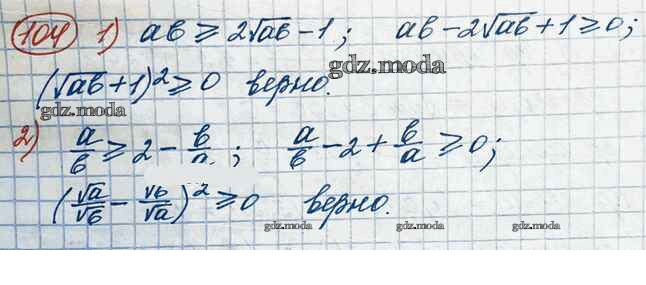 104 1) ab ≥ 2√ab - 1; ab - 2√ab + 1 ≥ 0;
(√ab + 1)² ≥ 0 верно.
gdz.moda
gdz.moda
2) a/b ≥ 2 - b/a; a/b - 2 + b/a ≥ 0;
(√a/√b - √b/√a)² ≥ 0 верно.
gdz.moda gdz.moda gdz.moda